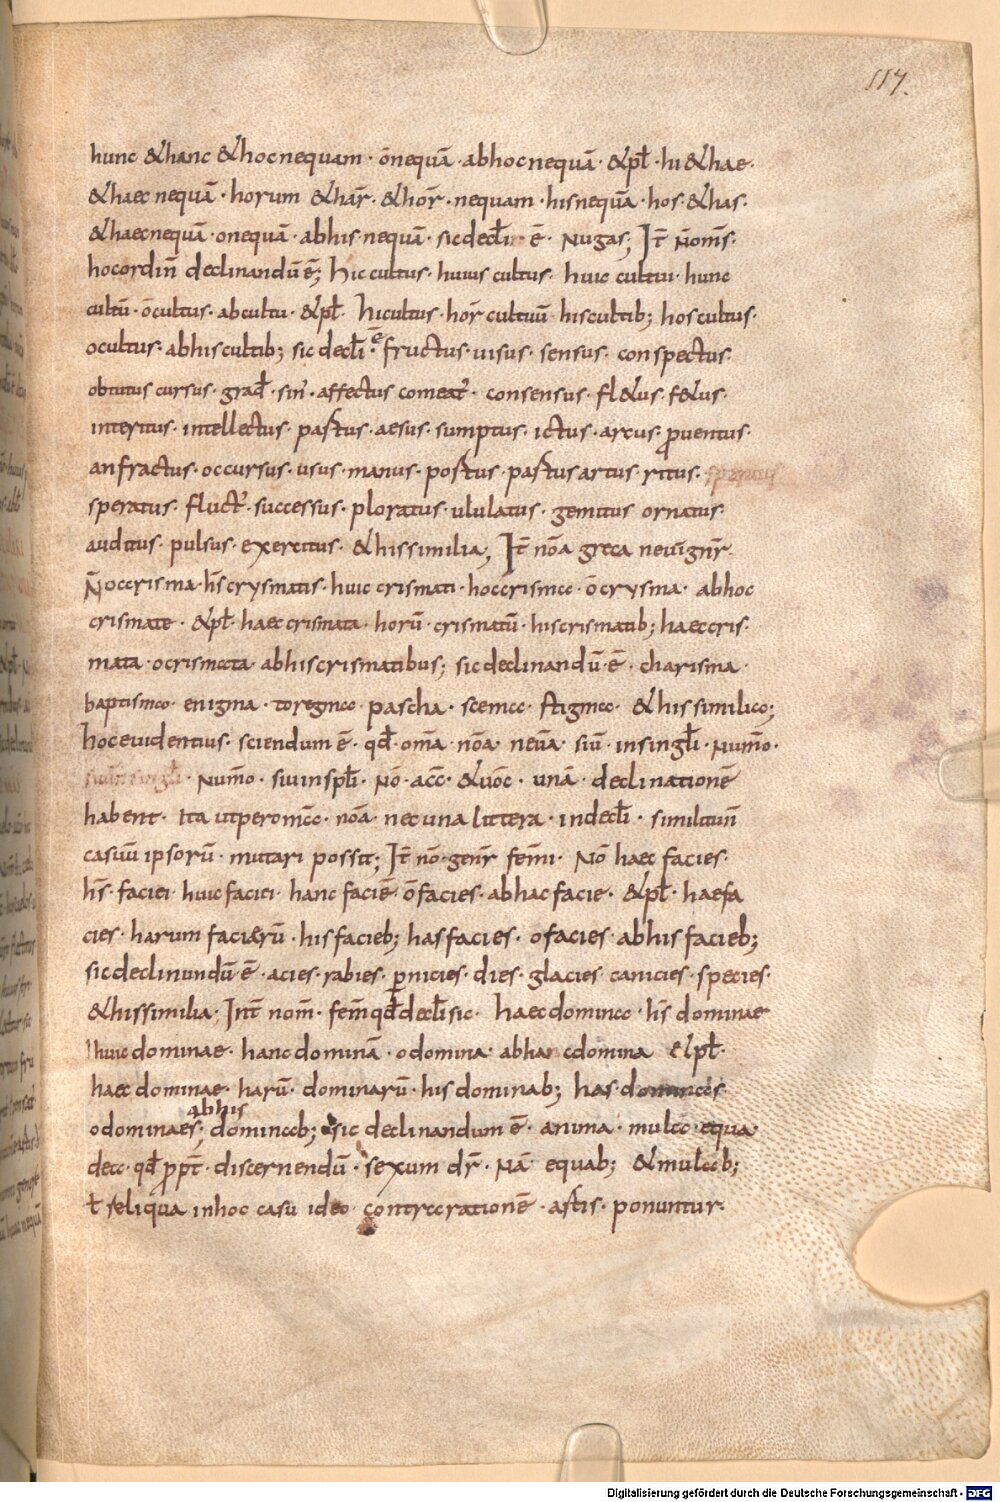 117.
hunc &hanc &hocnequam· ōnequā· abhocnequā· &pł· hi&hae·
&haec nequā· horum &har̄· &hor̄· nequam· hisnequā· hos· &has·
&haecnequā· onequā· abhis nequā· sicdecłi ē· Nugas; It̄ Nom̄s·
hocordin̄ declinandū ē; hic cultus· huius cultus· huic cultui· hunc
cultū· ōcultus· abcultu· &pł· hicultus· hor̄ cultuū· hiscultib; hoscultus·
ocultus· abhiscultib; sic decłi· ē fructus· uisus· sensus· conspectus·
obtutus cursus· grad· sin· affectus comeat· consensus· fl&us· f&us·
interitus· intellectus· pastus· aesus· sumptus· ictus· arcus· prouentus·
anfractus· occursus· usus· manus· postus· pastus artus· ritus·
speratus· fluct· successus· ploratus· ululatus· gemitus ornatus·
auditus· pulsus· exercitus· &hissimilia; It̄ nōa greca neui gnr̄·
N̄ occrisma· h̄s crysmatis· huic crismati· hoccrisma· ōcrysma· abhoc
crismate· &pł· haec crismata· horū· crismatū· hiscrismatib; haeccris
mata· ocrismata· abhiscrismatibus; sic declinandū· ē· charisma·
baptisma· enigma· toregma· pascha· scema· stigma· &hissimilia;
hoceuidentius· sciendum ē· qđ· om̄a· nōa· neūa· siū· insingłi· Num̄o·
Num̄o· siuinspłi· Nō· acc̄· &uōc· unā· declinationē
habent· Ita utperom̄a· nōa· necuna littera· indecłi· similitun̄
casuū ipsorū· mutari possit; It̄ nō· gnr̄ fem̄i· Nō haec facies·
h̄s· faciei· huic faciei· hanc faciē· ōfacies· abhac facie· &pł· haefa
cies· harum facierū· hisfacieb; hasfacies· ofacies· abhis facieb;
sicdeclinundū ē· acies· rabies· pernicies· dies· glacies· canicies· species·
&hissimilia· Int̄ nom̄· fem̄ qđ decłi sic· haec domina· h̄s dominae
huic dominae· hanc dominā· odomina· abhac domina &pł·
haec dominae· harū· dominarū· his dominab; has dominas·
odominaes; abhis dominab; sic declinandum ē· anima· mula· equa·
dea· qđ propt̄· discernendū· sexum dr̄· Nā equab; &mulab;
ł reliqua inhoc casu ideo contra rationē· astis· ponuntur·
Digitalisierung gefördert durch die Deutsche Forschungsgemeinschaft - DFG